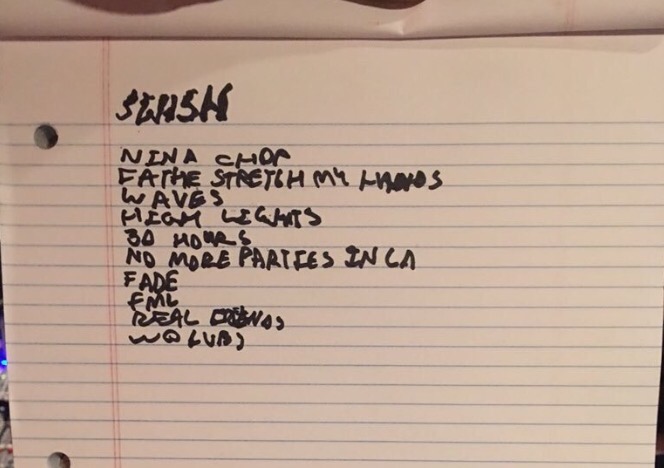 SWISH
NINA CHOP
FATHE STRETCH MY HANDS
WAVES
HIGH LIGHTS
30 HOURS
NO MORE PARTIES IN LA
FADE
FML
REAL FRIENDS
WOLVES